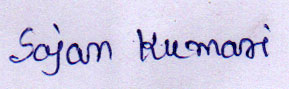 Sajan Kumari